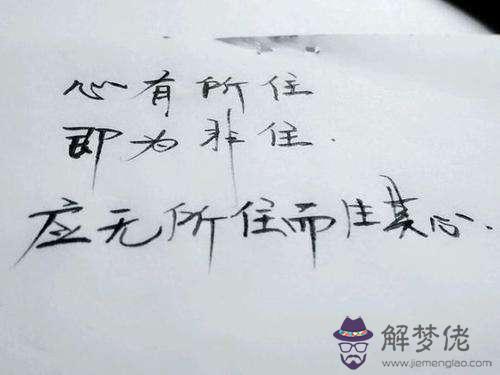 心有所住
即为非住.
应无所住而生其心.
解梦佬
www.jiemenglao.com